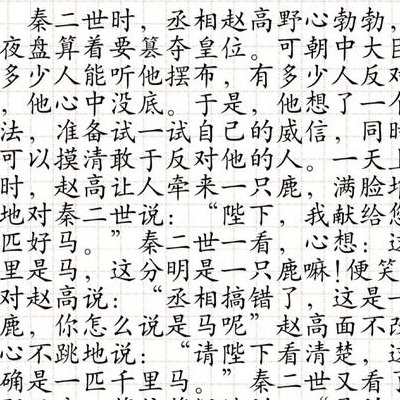 秦二世时，丞相赵高野心勃勃，
夜盘算着要篡夺皇位。可朝中大臣
多少人能听他摆布，有多少人反对
，他心中没底。于是，他想了一个
法，准备试一试自己的威信，同时
可以摸清敢于反对他的人。一天上
时，赵高让人牵来一只鹿，满脸堆
地对秦二世说：“陛下，我献给您
匹好马。”秦二世一看，心想：这
里是马，这分明是一只鹿嘛！便笑
对赵高说：“丞相搞错了，这是一
鹿，你怎么说是马呢”赵高面不改
心不跳地说：“请陛下看清楚，这
确是一匹千里马。”秦二世又看了